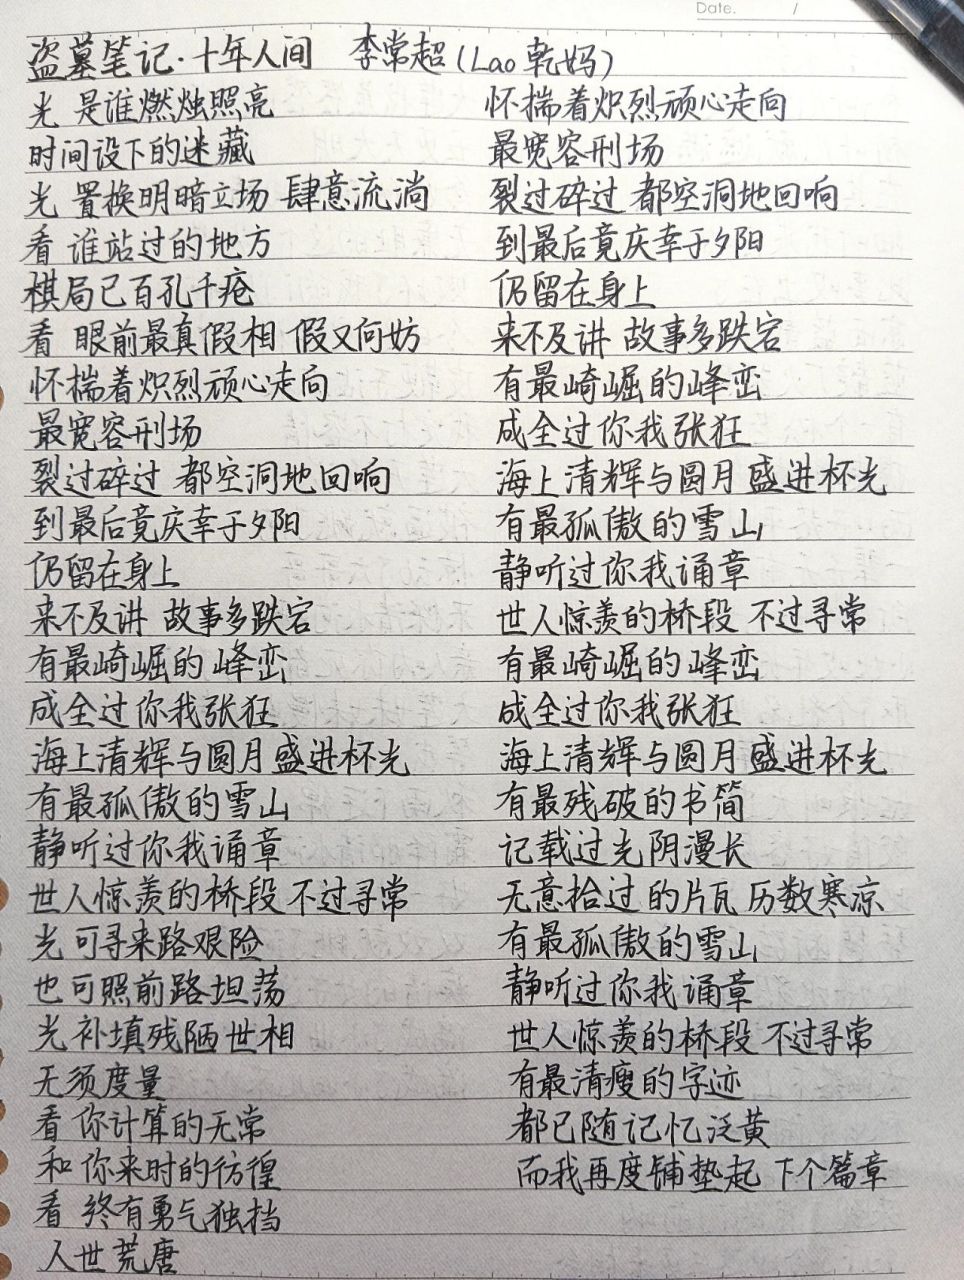 Date. /
盗墓笔记·十年人间 李常超(Lao乾妈)
光 是谁燃烛照亮
时间设下的迷藏
光 置换明暗立场 肆意流淌
看 谁站过的地方
棋局已百孔千疮
看 眼前最真假相 假又何妨
怀揣着炽烈顽心走向
最宽容刑场
裂过碎过 都空洞地回响
到最后竟庆幸于夕阳
仍留在身上
来不及讲 故事多跌宕
有最崎崛的峰峦
成全过你我张狂
海上清辉与圆月盛进杯光
有最孤傲的雪山
静听过你我诵章
世人惊羡的桥段 不过寻常
光 可寻来路艰险
也可照前路坦荡
光 补填残陋世相
无须度量
看 你计算的无常
和你来时的彷徨
看 终有勇气独挡
人世荒唐
怀揣着炽烈顽心走向
最宽容刑场
裂过碎过 都空洞地回响
到最后竟庆幸于夕阳
仍留在身上
来不及讲 故事多跌宕
有最崎崛的峰峦
成全过你我张狂
海上清辉与圆月盛进杯光
有最孤傲的雪山
静听过你我诵章
世人惊羡的桥段 不过寻常
有最崎崛的峰峦
成全过你我张狂
海上清辉与圆月盛进杯光
有最残破的书简
记载过光阴漫长
无意拾过的片瓦 历数寒凉
有最孤傲的雪山
静听过你我诵章
世人惊羡的桥段 不过寻常
有最清瘦的字迹
都已随记忆泛黄
而我再度铺垫起 下个篇章